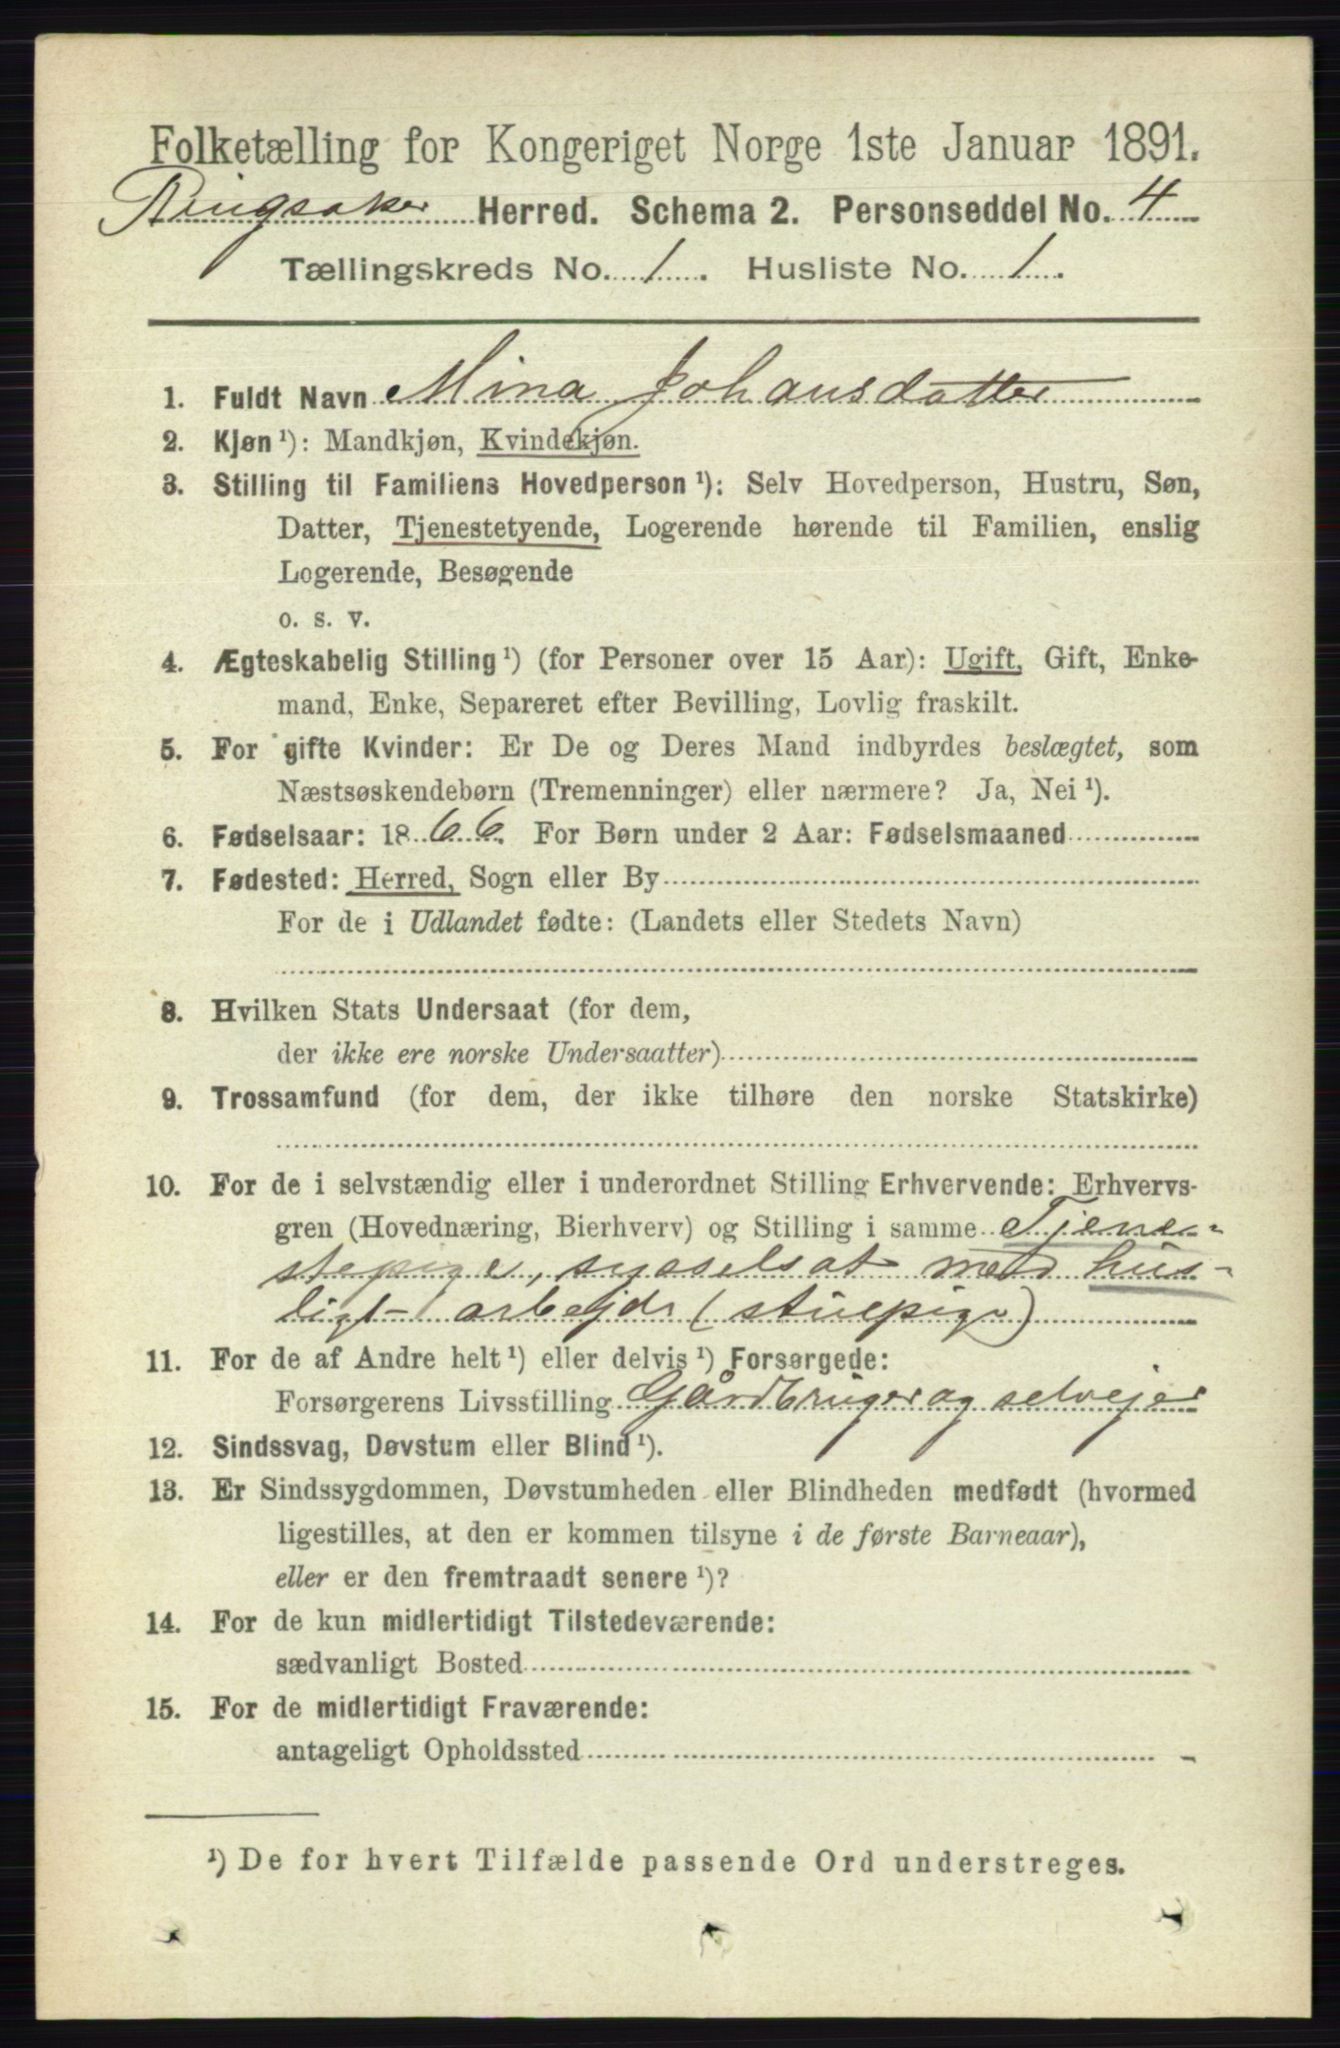 Folketælling for Kongeriget Norge 1ste Januar 1891.
Ringsaker Herred. Schema 2. Personseddel No. 4
Tællingskreds No. 1. Husliste No. 1.
1. Fuldt Navn Mina Johansdatter
2. Kjøn ¹): Mandkjøn, Kvindekjøn.
3. Stilling til Familiens Hovedperson ¹): Selv Hovedperson, Hustru, Søn,
Datter, Tjenestetyende, Logerende hørende til Familien, enslig
Logerende, Besøgende
o. s. v.
4. Ægteskabelig Stilling ¹) (for Personer over 15 Aar): Ugift, Gift, Enke-
mand, Enke, Separeret efter Bevilling, Lovlig fraskilt.
5. For gifte Kvinder: Er De og Deres Mand indbyrdes beslægtet, som
Næstsøskendebørn (Tremenninger) eller nærmere? Ja, Nei ¹).
6. Fødselsaar: 1866. For Børn under 2 Aar: Fødselsmaaned
7. Fødested: Herred, Sogn eller By
For de i Udlandet fødte: (Landets eller Stedets Navn)
8. Hvilken Stats Undersaat (for dem,
der ikke ere norske Undersaatter)
9. Trossamfund (for dem, der ikke tilhøre den norske Statskirke)
10. For de i selvstændig eller i underordnet Stilling Erhvervende: Erhvervs-
gren (Hovednæring, Bierhverv) og Stilling i samme Tjene-
stepige, sysselsat med hus-
ligt arbejde (stuepige)
11. For de af Andre helt ¹) eller delvis ¹) Forsørgede:
Forsørgerens Livsstilling Gårdbruger og selvejer
12. Sindssvag, Døvstum eller Blind ¹).
13. Er Sindssygdommen, Døvstumheden eller Blindheden medfødt (hvormed
ligestilles, at den er kommen tilsyne i de første Barneaar),
eller er den fremtraadt senere ¹)?
14. For de kun midlertidigt Tilstedeværende:
sædvanligt Bosted
15. For de midlertidigt Fraværende:
antageligt Opholdssted
¹) De for hvert Tilfælde passende Ord understreges.